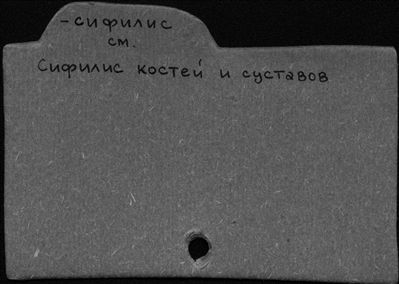 -сифилис
см.
Сифилис костей и суставов